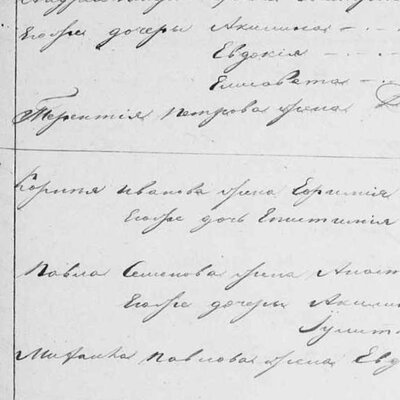 Егоже дочеры Акилина
Евдокія
Елисавета
Терентія Петрова жена
Корнея Иванова жена Евфимія
Егоже дочь Епистимія
Павла Семенова жена Анаст
Егоже дочеры Акили
Іулит
Михаила Павлова жена Евд